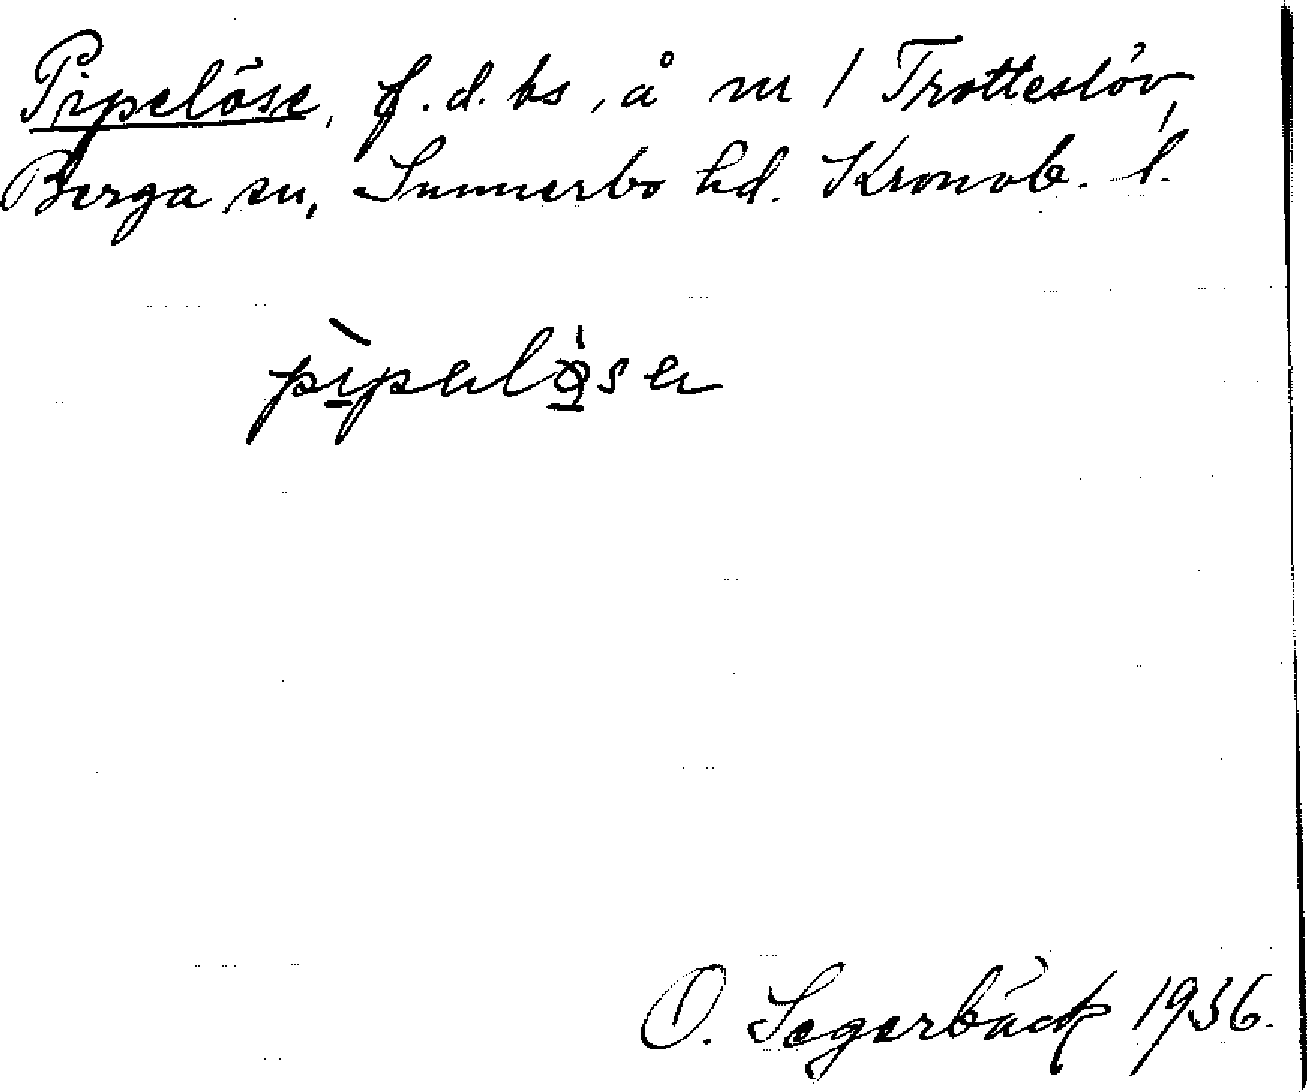 Pipelöse, f.d. bs, å nr 1 Trotteslöv,
Berga sn, Sunnerbo hd. Kronob. l.
pìpelösa
O. Segerbäck 1936.